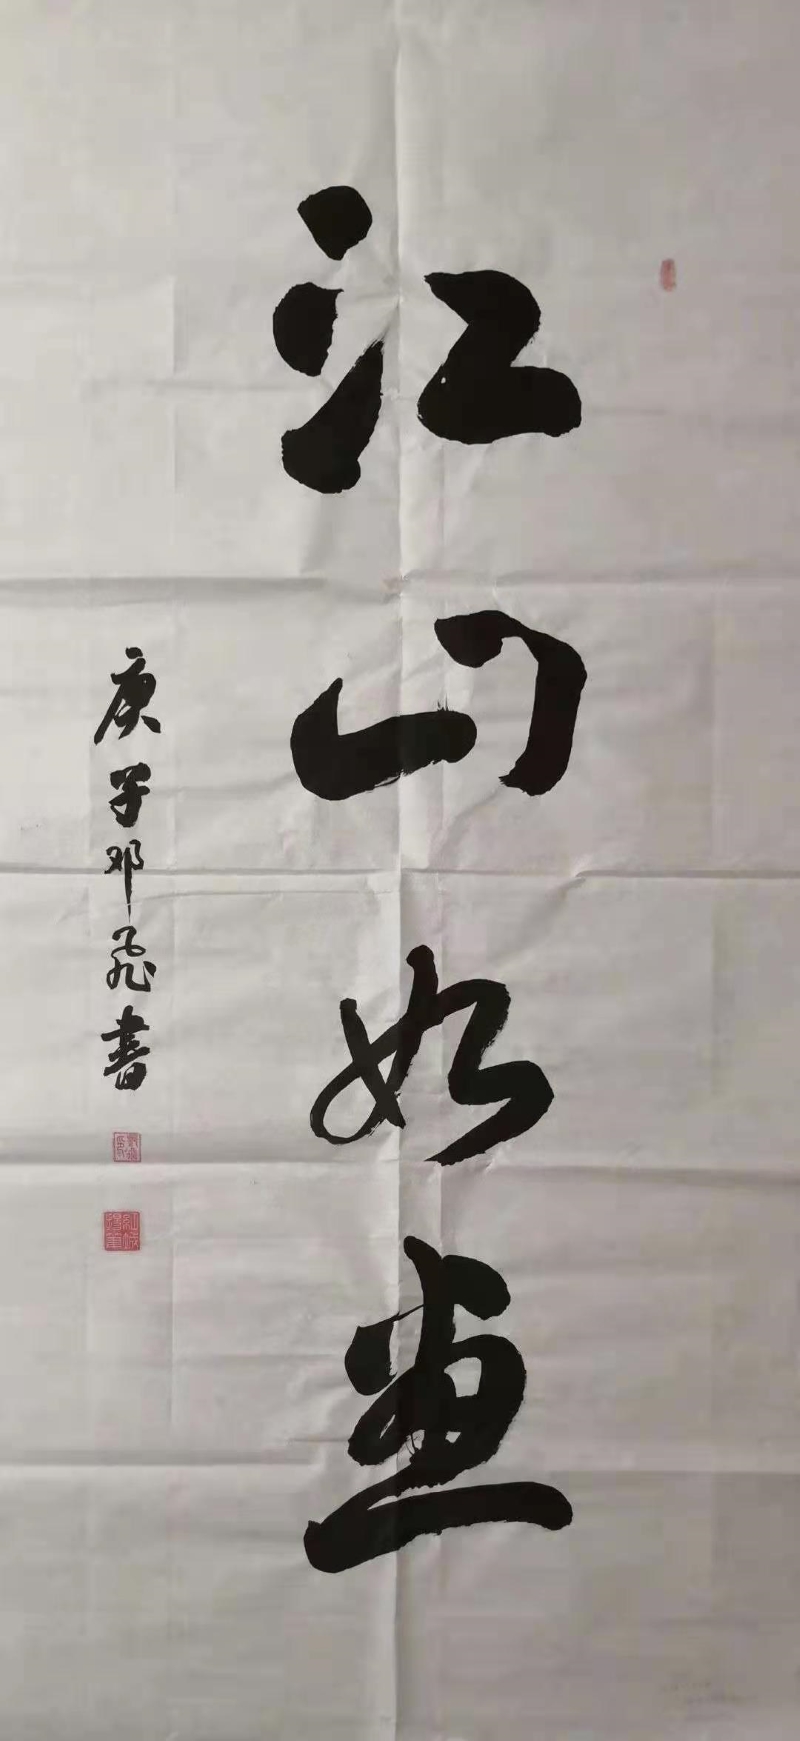 江山如画
庚子邓飞書